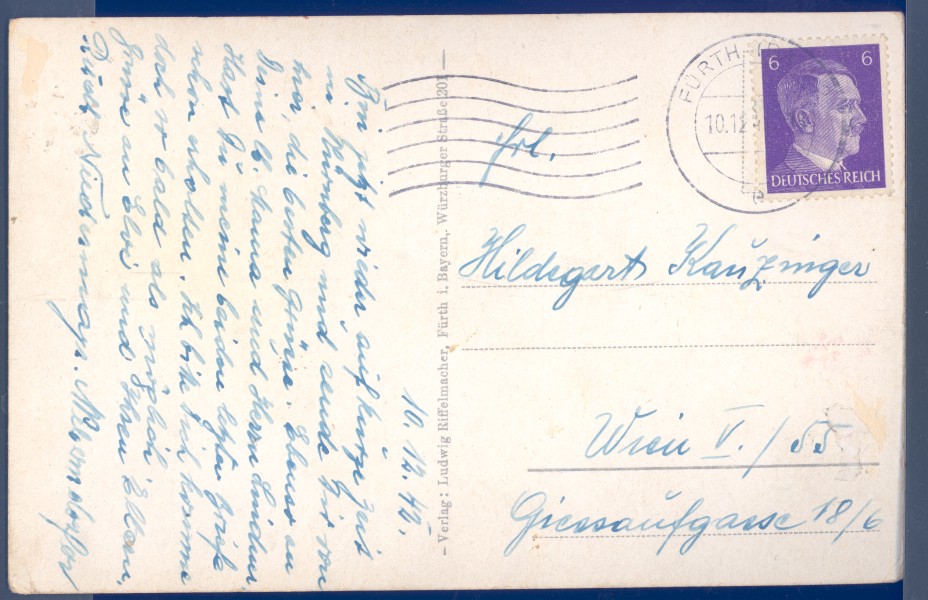 10. 12. 42.
Bin jetzt wieder auf kurze Zeit
in Nürnberg und sende Dir von
hier, die besten Grüsse. Ebenso an
Deine lb. Mama und Herrn
Hast Du meine beiden letzten Briefe
schon erhalten. Ich bitte Dich komme
doch so bald als möglich
Grüsse an und Ihren Eltern,

- Verlag: Ludwig Riffelmacher, Fürth i. Bayern, Würzburger Straße 201 -
FÜRTH
10.12.
6 6
DEUTSCHES REICH
Frl.
Hildegart Kauzinger
Wien V. / 55
Giessaufgasse 18/6